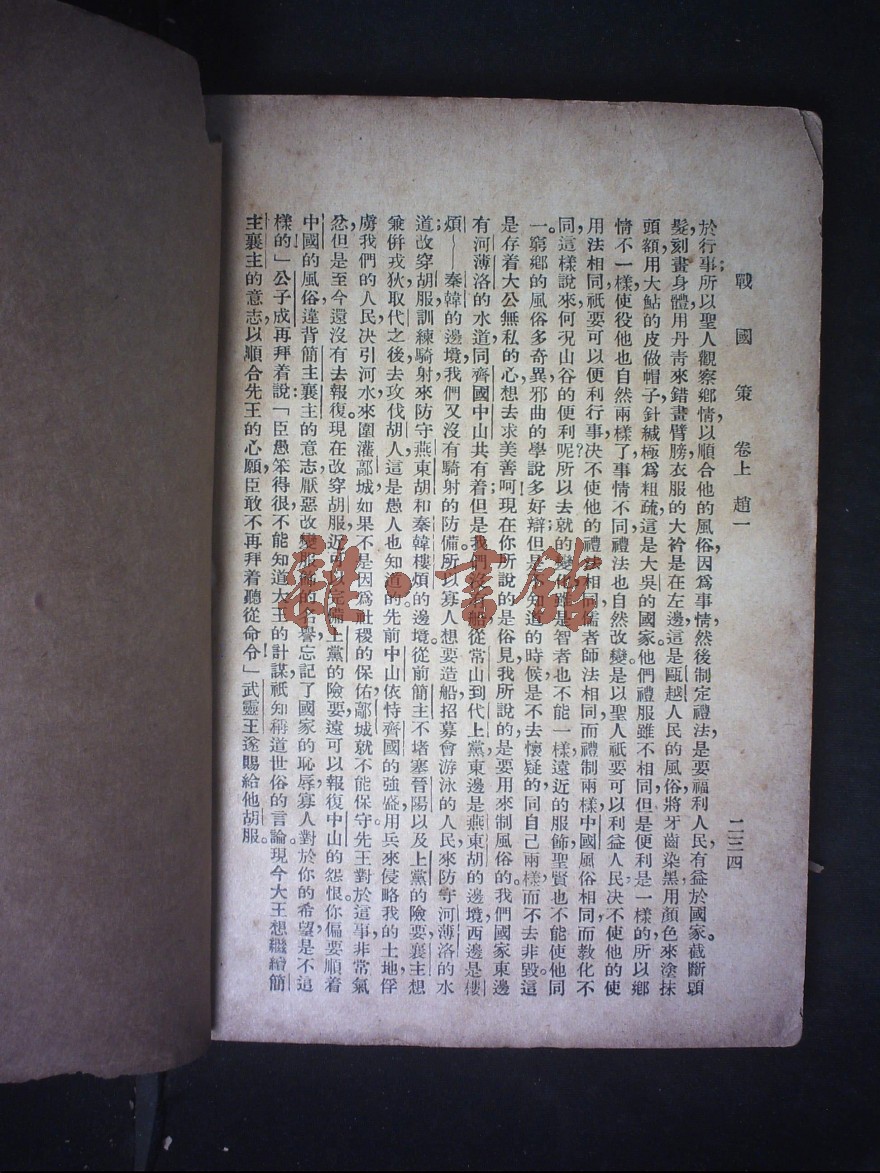 戰國策 卷上 趙一 二三四
於行事;所以聖人觀察鄉情,以順合他的風俗,因爲事情,然後制定禮法,是要福利人民,有益於國家。截斷頭
髮,刻畫身體,用丹靑來錯畫臂膀,衣服的大衿是在左邊,這是甌越人民的風俗,將牙齒染黑,用顏色來塗抹
頭額,用大鮎的皮做帽子,針緘極爲粗疏,這是大吳的國家。他們禮服雖不相同,但是便利是一樣的,所以鄉
情不一樣,使役他也自然兩樣了,事情不同,禮法也自然改變,是以聖人祇要可以利益人民,决不使他的使
用法相同,祇要可以便利行事,决不使他的禮法相同,儒者師法相同,而禮制兩樣,中國風俗相同,而敎化不
同,這樣說來,何况山谷的便利呢?所以去就的變化,雖是智者也不能一樣,遠近的服飾,聖賢也不能使他同
一。窮鄉的風俗多奇異,邪曲的學說多好辯;但是不知道的時候,是不去懷疑的,同自己兩樣,而不去非毁,這
是存着大公無私的心想去求美善呵!現在你所說的是俗見,我所說的是要用來制風俗的。我們國家東邊
有河薄洛的水道,同齊國中山共有着;但是我們沒有船,從常山到代上黨,東邊是燕東胡的邊境,西邊是樓
煩——秦韓的邊境,我們又沒有騎射的防備,所以寡人想要造船,招募會游泳的人民,來防守河薄洛的水
道;改穿胡服,訓練騎射,來防守燕東胡和秦韓樓煩的邊境。從前簡主不堵塞晉陽以及上黨的險要,襄主想
兼併戎狄,取代之後,去攻伐胡人,這是愚人也知道的。先前中山依恃齊國的強盛,用兵來侵略我的土地,俘
虜我們的人民,决引河水來圍灌鄗城,如果不是因爲社稷的保佑,鄗城就不能保守,先王對於這事非常氣
忿,但是至今還沒有去報復。現在改穿胡服,近可以完備上黨的險要,遠可以報復中山的怨恨。你偏要順着
中國的風俗,違背簡主襄主的意志,厭惡改變服飾的名譽,忘記了國家的恥辱,寡人對於你的希望,是不這
樣的!」公子成再拜着說:「臣愚笨得很,不能知道大王的計謀,祇知稱道世俗的言論。現今大王想繼續簡
主襄主的意志,以順合先王的心願,臣敢不再拜着聽從命令!」武靈王遂賜給他胡服。
雜·書館